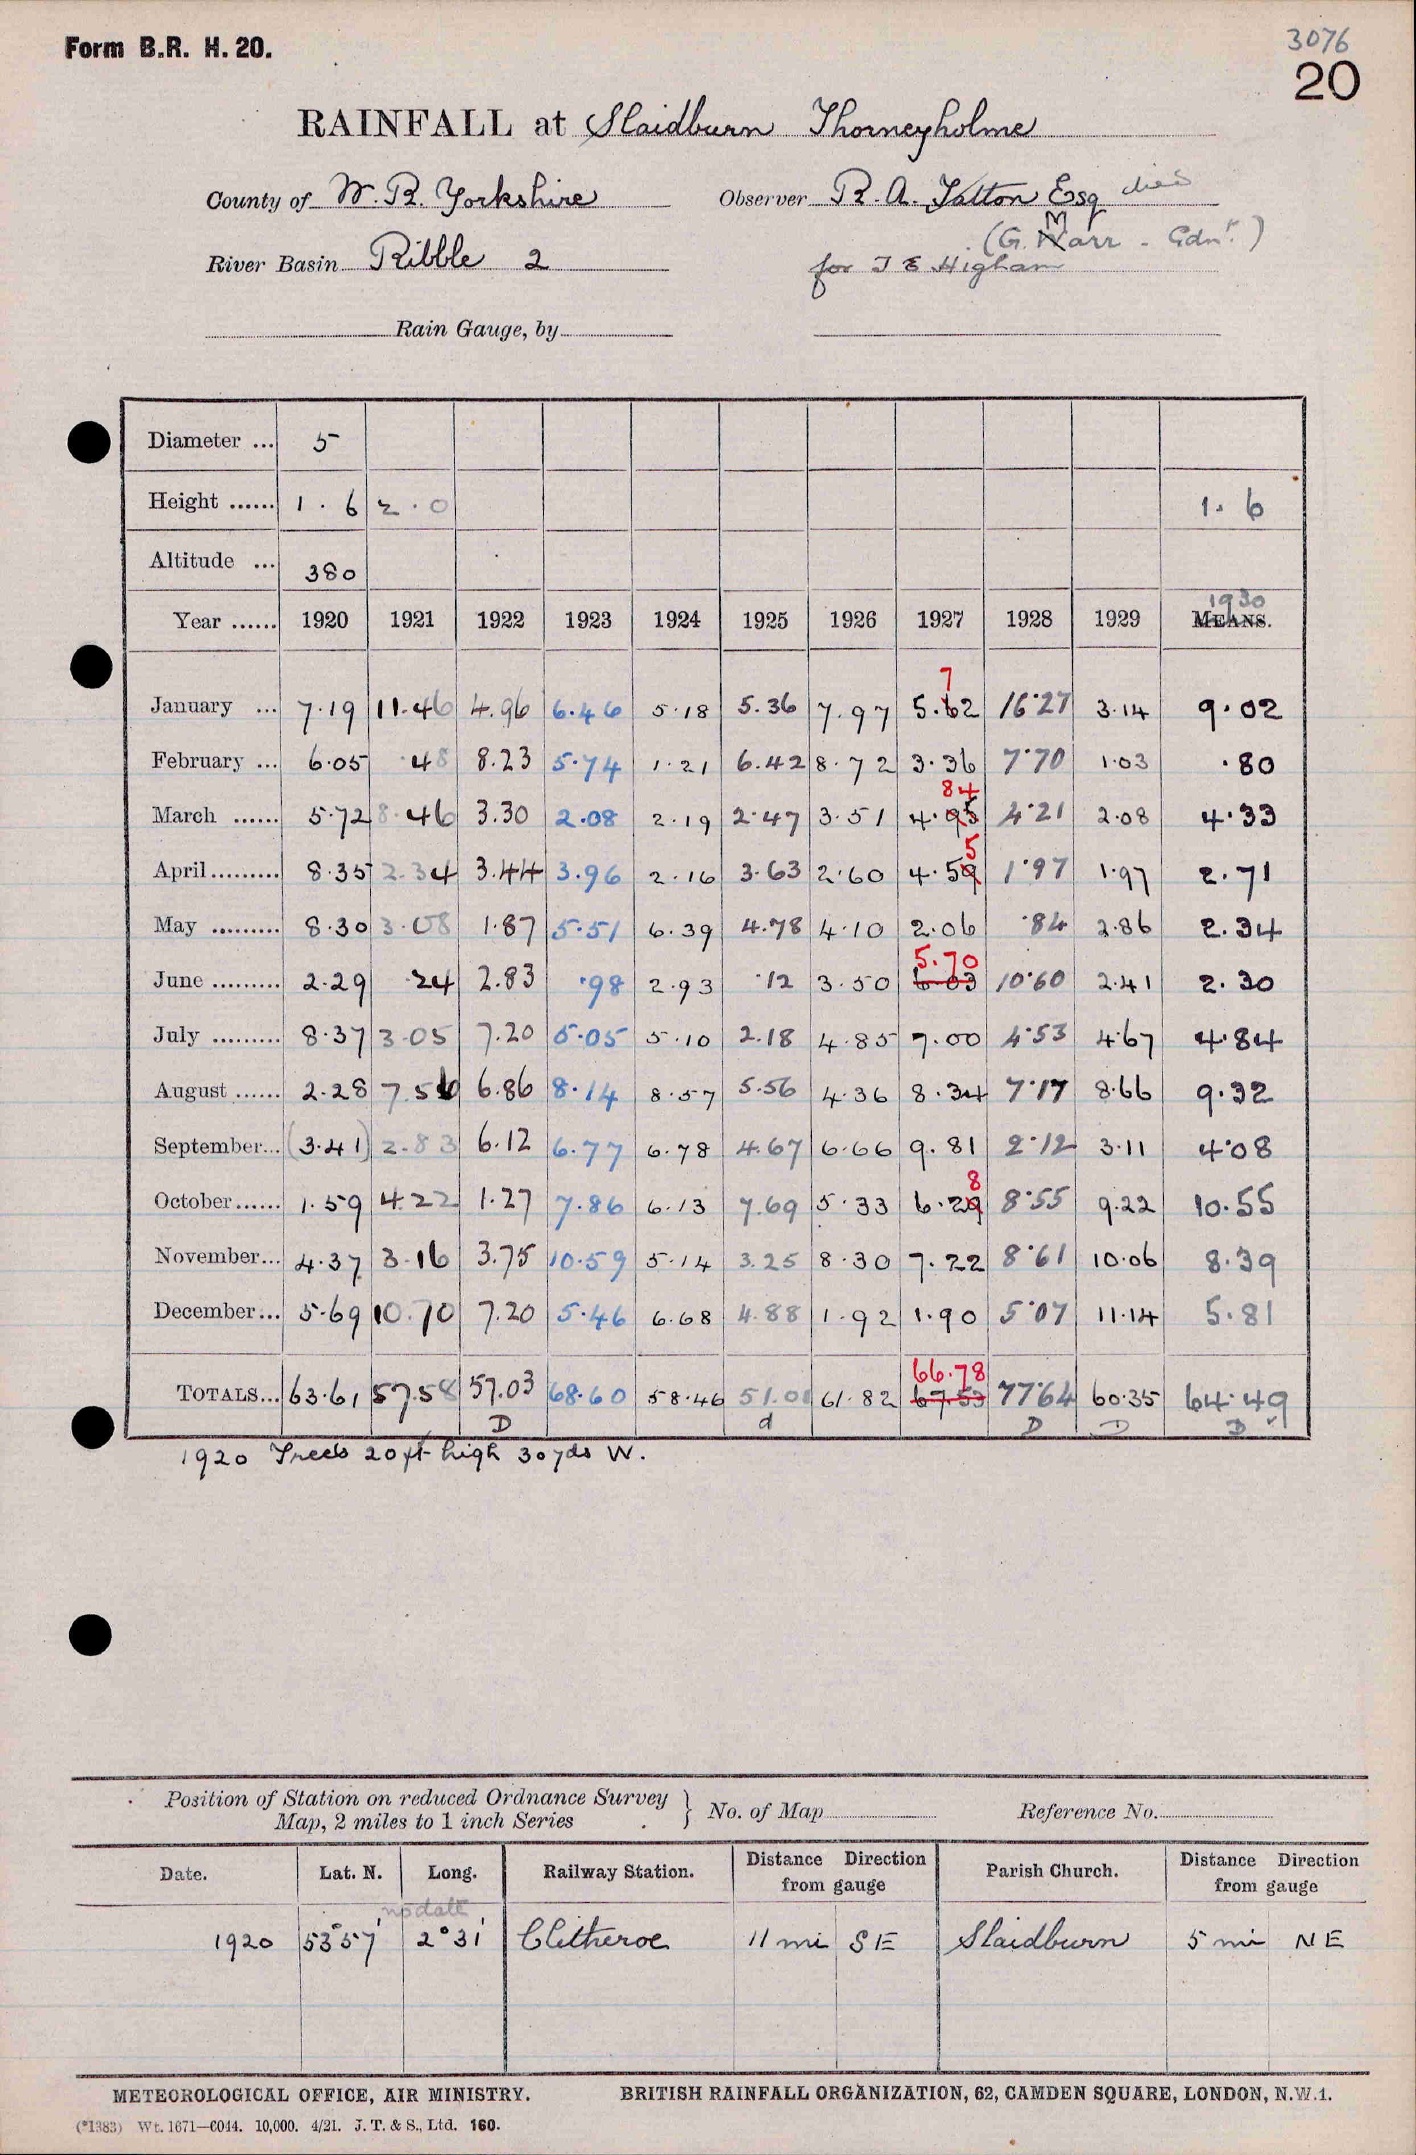 3076
Form B.R. H. 20.
20
RAINFALL at Slaidburn Thorneyholme
County of W. R. Yorkshire Observer R. A. Tatton Esq died
(G. Marr - Gdnr.)
River Basin Ribble 2 for T E Higham
Rain Gauge, by
Diameter ... 5
Height ...... 1.6 2.0 1.6
Altitude ... 380
1930
Year ...... 1920 1921 1922 1923 1924 1925 1926 1927 1928 1929 MEANS.
7
January ... 7.19 11.46 4.96 6.46 5.18 5.36 7.97 5.62 16.27 3.14 9.02
February ... 6.05 .48 8.23 5.74 1.21 6.42 8.72 3.36 7.70 1.03 .80
84
March ...... 5.72 8.46 3.30 2.08 2.19 2.47 3.51 4.95 4.21 2.08 4.33
5
April ......... 8.35 2.34 3.44 3.96 2.16 3.63 2.60 4.59 1.97 1.97 2.71
May ......... 8.30 3.08 1.87 5.51 6.39 4.78 4.10 2.06 .84 2.86 2.34
5.70
June ......... 2.29 .24 2.83 .98 2.93 .12 3.50 6.03 10.60 2.41 2.30
July ......... 8.37 3.05 7.20 5.05 5.10 2.18 4.85 7.00 4.53 4.67 4.84
August ...... 2.28 7.56 6.86 8.14 8.57 5.56 4.36 8.34 7.17 8.66 9.32
September... (3.41) 2.83 6.12 6.77 6.78 4.67 6.66 9.81 2.12 3.11 4.08
8
October ...... 1.59 4.22 1.27 7.86 6.13 7.69 5.33 6.29 8.55 9.22 10.55
November... 4.37 3.16 3.75 10.59 5.14 3.25 8.30 7.22 8.61 10.06 8.39
December... 5.69 10.70 7.20 5.46 6.68 4.88 1.92 1.90 5.07 11.14 5.81
66.78
TOTALS... 63.61 57.58 57.03 68.60 58.46 51.01 61.82 67.53 77.64 60.35 64.49
D d D D D
1920 Trees 20 ft high 30 yds W.
Position of Station on reduced Ordnance Survey
Map, 2 miles to 1 inch Series } No. of Map Reference No.
Date. Lat. N. Long. Railway Station. Distance Direction from gauge Parish Church. Distance Direction from gauge
no date
1920 53°57' 2°31' Clitheroe 11 mi SE Slaidburn 5 mi NE
METEOROLOGICAL OFFICE, AIR MINISTRY. BRITISH RAINFALL ORGANIZATION, 62, CAMDEN SQUARE, LONDON, N.W.1.
(*1383) Wt. 1671—6044. 10,000. 4/21. J. T. & S., Ltd. 160.